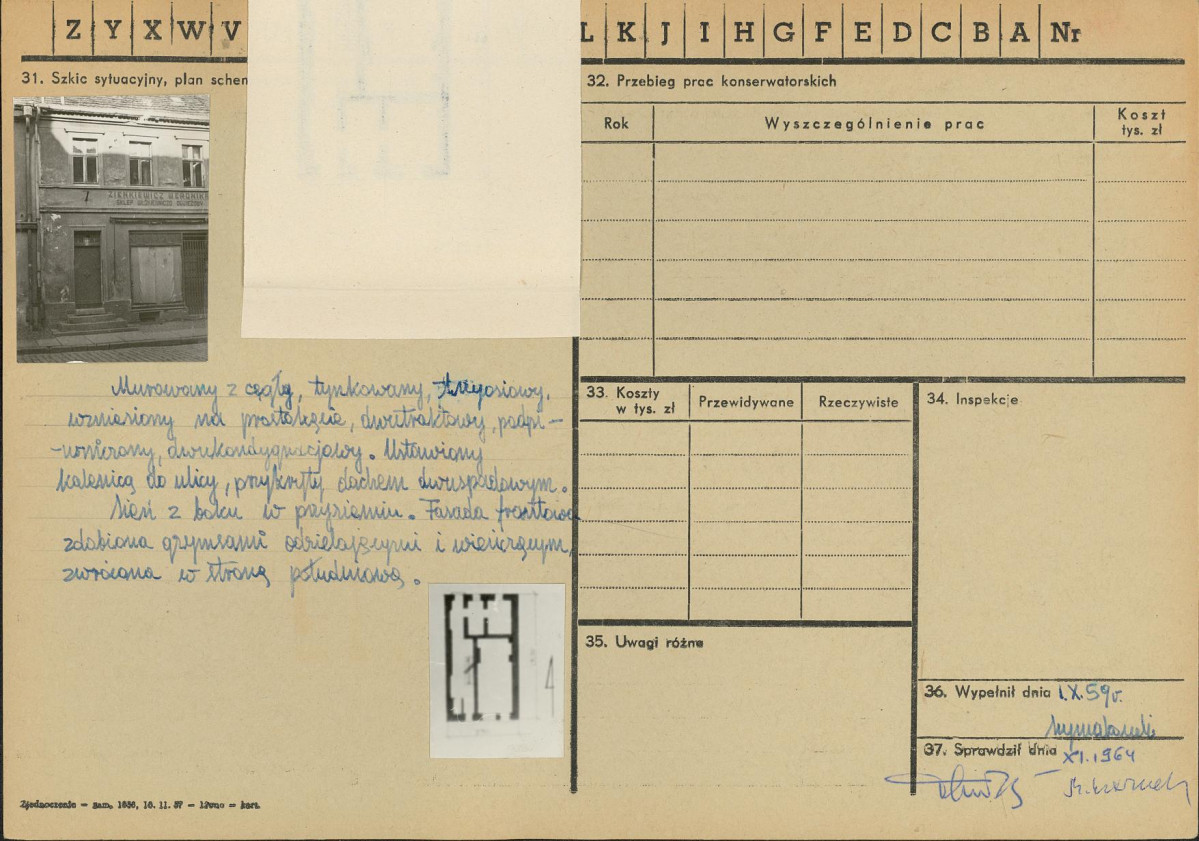 Z Y X W V L K J I H G F E D C B A Nr
31. Szkic sytuacyjny, plan schem
ZIENKIEWICZ WERONIKA
SKLEP
Murowany z cegły, tynkowany, trzyosiowy,
wzniesiony na prostokącie, dwutraktowy, podpi-
-wniczony, dwukondygnacyjowy. Ustawiony
kalenicą do ulicy, przykryty dachem dwuspadowym.
Sień z boku w przyziemiu. Fasada frontowa
zdobiona gzymsami odzielającymi i wieńczącym,
zwrócona w stronę południową.
Zjednoczenie — zam. 1636, 16. 11. 57 —
32. Przebieg prac konserwatorskich
Rok
Wyszczególnienie prac
Koszt
tys. zł
33. Koszty
w tys. zł
Przewidywane
Rzeczywiste
34. Inspekcje
35. Uwagi różne
36. Wypełnił dnia I.X.59r.
37. Sprawdził dnia XI.1964